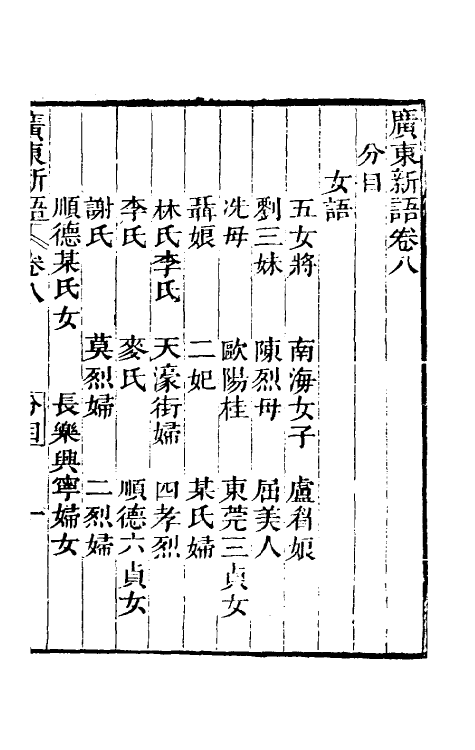 廣東新語卷八
分目
女語
五女將 南海女子 盧眉娘
劉三妹 陳烈母 屈美人
冼母 歐陽桂 東莞三貞女
聶娘 二妃 某氏婦
林氏李氏 天濠街婦 四孝烈
李氏 麥氏 順德六貞女
謝氏 莫烈婦 二烈婦
順德某氏女 長樂興寧婦女
廣東新語 卷八 分目 一